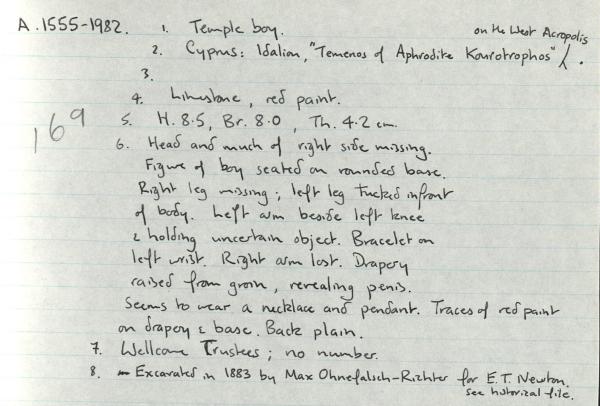 A.1555-1982. 1. Temple boy. on the West Acropolis
2. Cyprus: Idalion, "Temenos of Aphrodite Kourotrophos" /.
3.
4. Limestone, red paint.
169
5. H. 8.5, Br. 8.0, Th. 4.2 cm.
6. Head and much of right side missing.
Figure of boy seated on rounded base.
Right leg missing; left leg tucked infront
of body. Left arm beside left knee
& holding uncertain object. Bracelet on
left wrist. Right arm lost. Drapery
raised from groin, revealing penis.
Seems to wear a necklace and pendant. Traces of red paint
on drapery & base. Back plain.
7. Wellcome Trustees; no number.
8. Excavated in 1883 by Max Ohnefalsch-Richter for E.T. Newton.
see historical file.